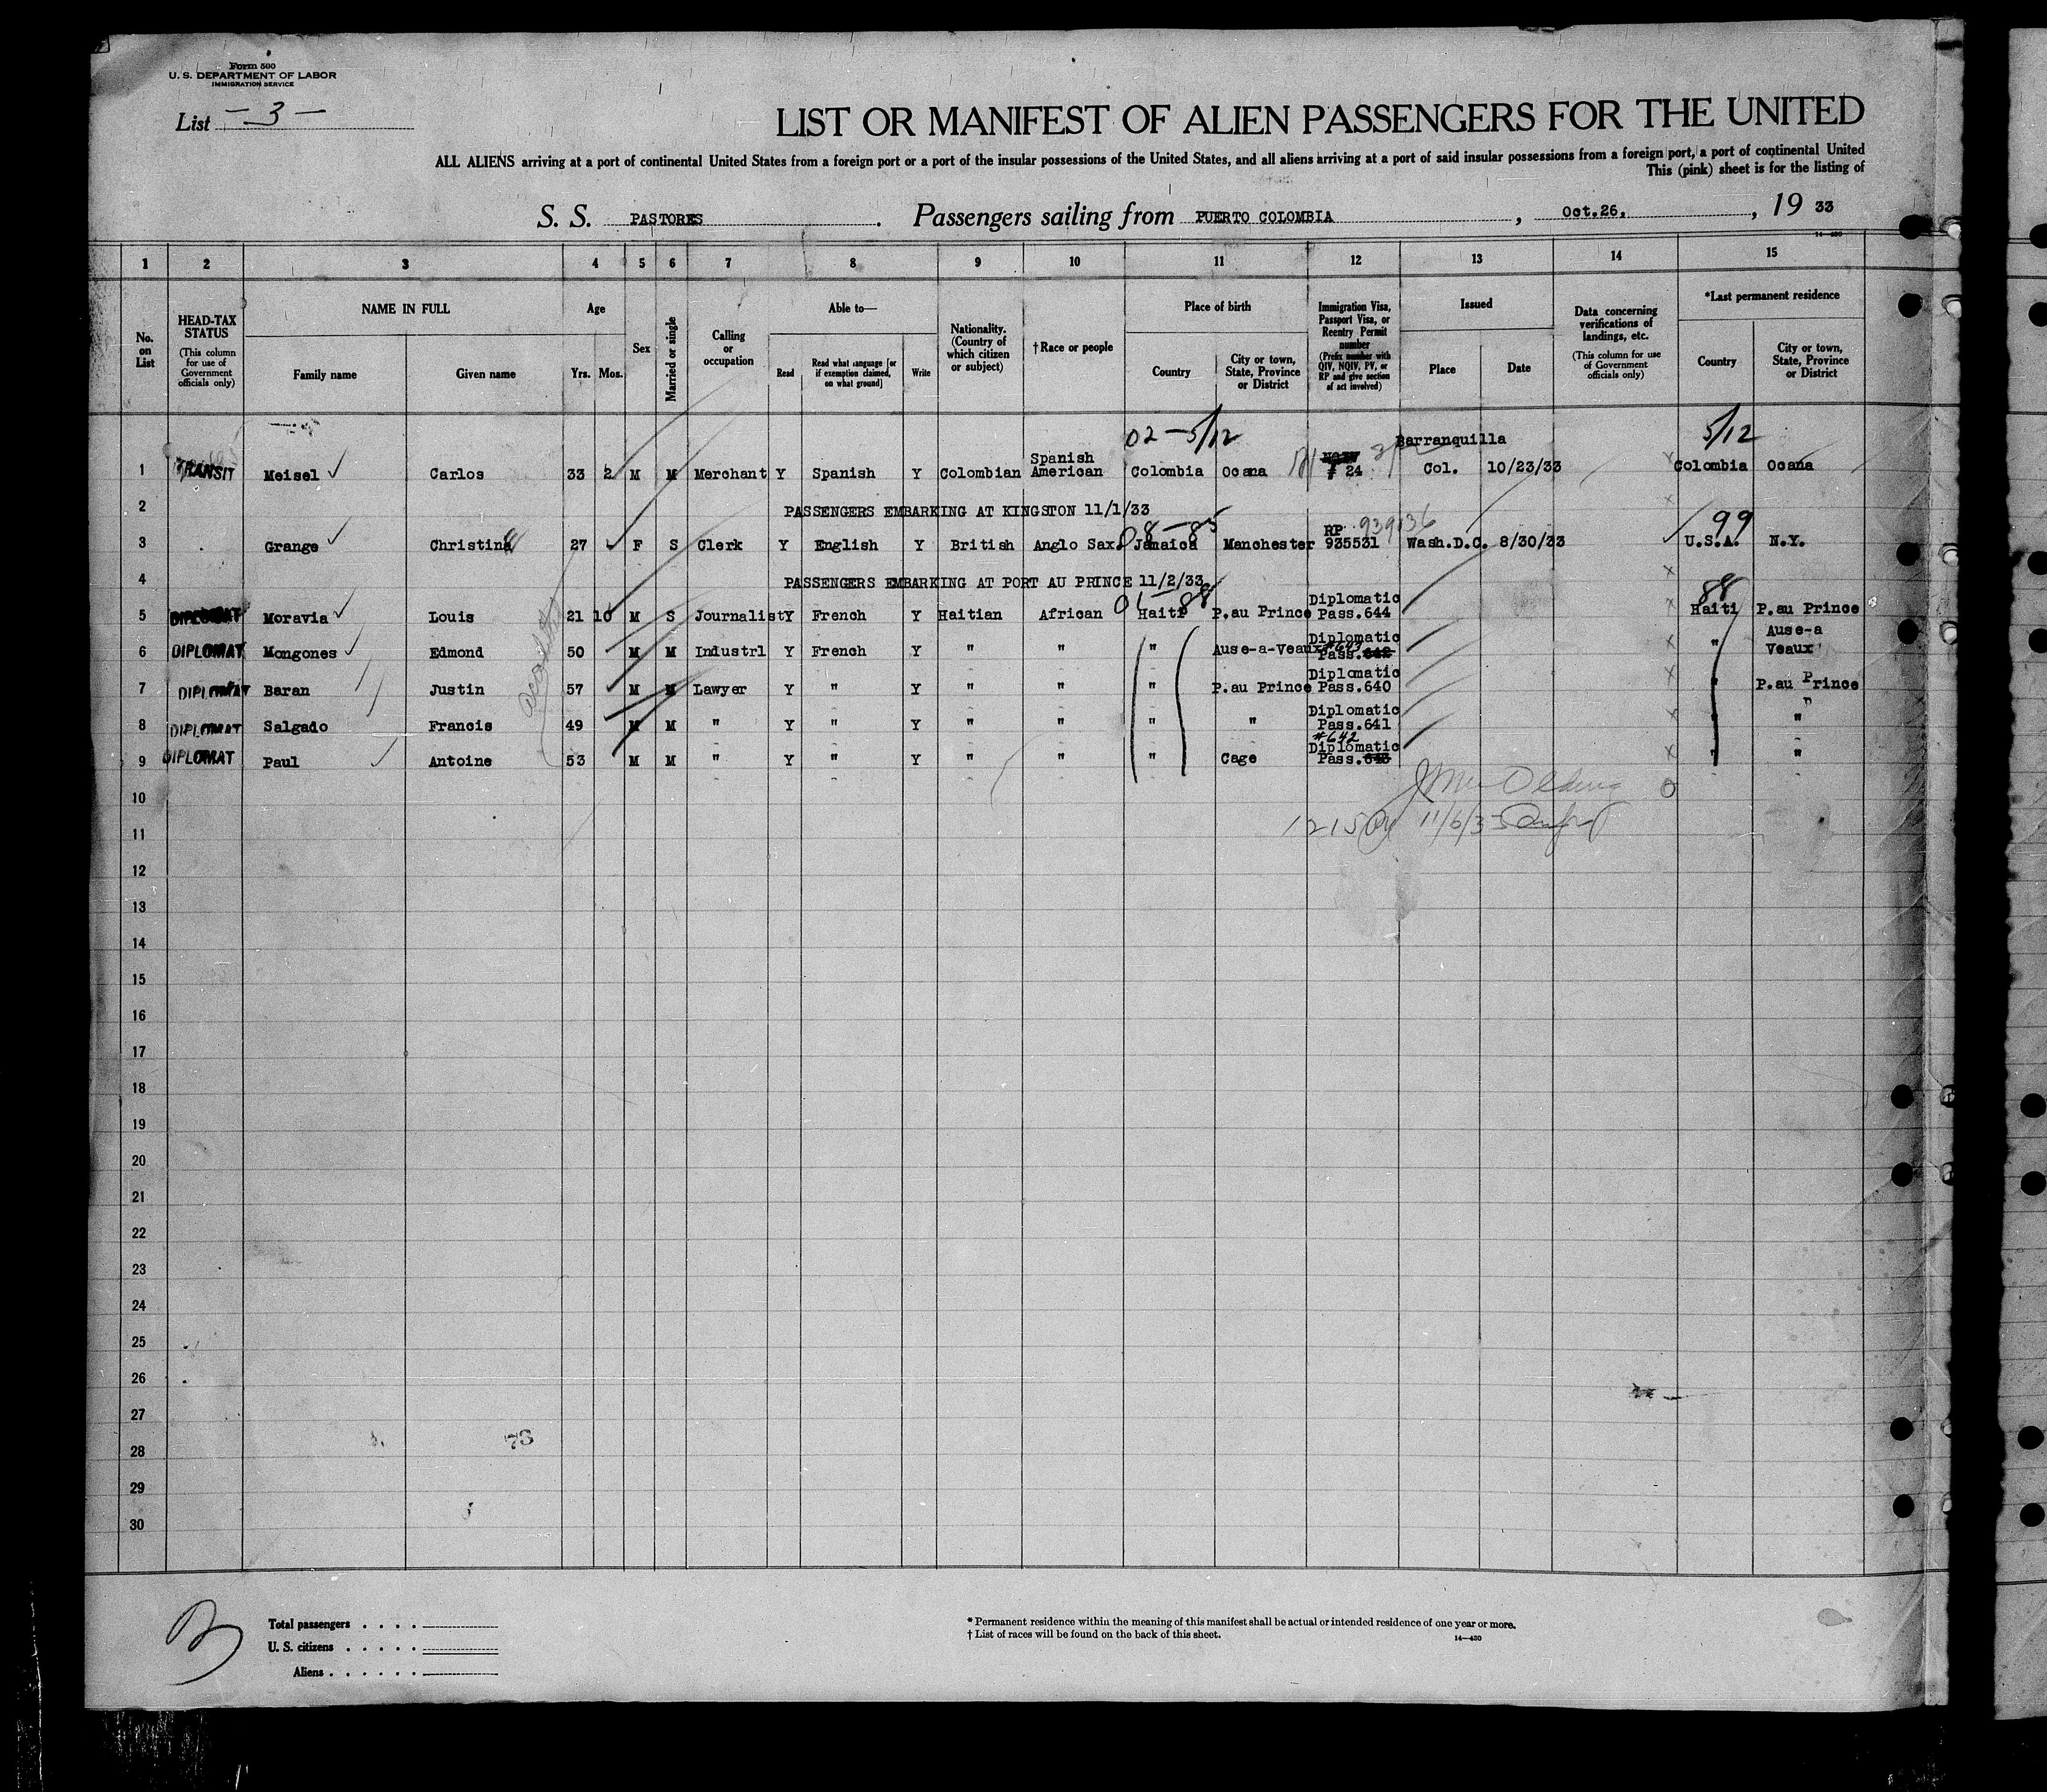 Form 500
U. S. DEPARTMENT OF LABOR
IMMIGRATION SERVICE
List - 3 -
LIST OR MANIFEST OF ALIEN PASSENGERS FOR THE UNITED
ALL ALIENS arriving at a port of continental United States from a foreign port or a port of the insular possessions of the United States, and all aliens arriving at a port of said insular possessions from a foreign port, a port of continental United
This (pink) sheet is for the listing of
S. S. PASTORES . Passengers sailing from PUERTO COLOMBIA , Oct.26, , 19 33
1 2 3 4 5 6 7 8 9 10 11 12 13 14 15
No. on List
HEAD-TAX STATUS (This column for use of Government officials only)
NAME IN FULL
Family name Given name
Age
Yrs. Mos.
Sex
Married or single
Calling or occupation
Able to—
Read
Read what language [or if exemption claimed, on what ground]
Write
Nationality. (Country of which citizen or subject)
† Race or people
Place of birth
Country
City or town, State, Province or District
Immigration Visa, Passport Visa, or Reentry Permit number (Prefix number with QIV, NQIV, PV, or RP and give section of act involved)
Issued
Place Date
Data concerning verifications of landings, etc. (This column for use of Government officials only)
*Last permanent residence
Country
City or town, State, Province or District
02-5/12 5/12
1 TRANSIT Meisel Carlos 33 2 M M Merchant Y Spanish Y Colombian Spanish American Colombia Ocana # 24 Barranquilla Col. 10/23/33 Colombia Ocana
2 PASSENGERS EMBARKING AT KINGSTON 11/1/33
08-85 939136 99
3 Grange Christina 27 F S Clerk Y English Y British Anglo Sax. Jamaica Manchester RP 935531 Wash.D.C. 8/30/33 U.S.A. N.Y.
4 PASSENGERS EMBARKING AT PORT AU PRINCE 11/2/33
01-88 88
5 DIPLOMAT Moravia Louis 21 10 M S Journalist Y French Y Haitian African Haiti P.au Prince Diplomatic Pass.644 Haiti P.au Prince
6 DIPLOMAT Mongones Edmond 50 M M Industrl Y French Y " " " Ause-a-Veaux Diplomatic #643 Pass.642 " Ause-a Veaux
7 DIPLOMAT Baran Justin 57 M M Lawyer Y " Y " " " P.au Prince Diplomatic Pass.640 " P.au Prince
8 DIPLOMAT Salgado Francis 49 M M " Y " Y " " " " Diplomatic Pass.641 " "
9 DIPLOMAT Paul Antoine 53 M M " Y " Y " " " Cage #642 Diplomatic Pass.643 " "
10
1215 11/6/33
11
12
13
14
15
16
17
18
19
20
21
22
23
24
25
26
27
28
29
30
Total passengers . . . .
U. S. citizens . . . . .
Aliens . . . . . .
* Permanent residence within the meaning of this manifest shall be actual or intended residence of one year or more.
† List of races will be found on the back of this sheet.
14—430